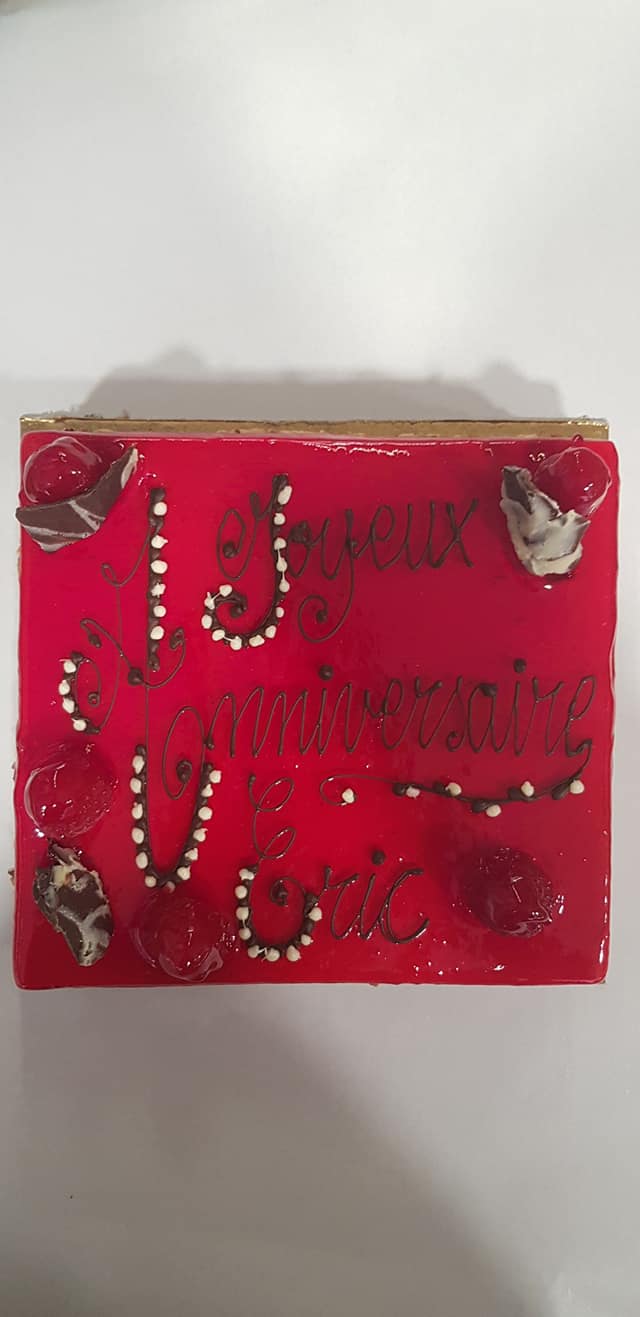 Joyeux
Anniversaire
Eric